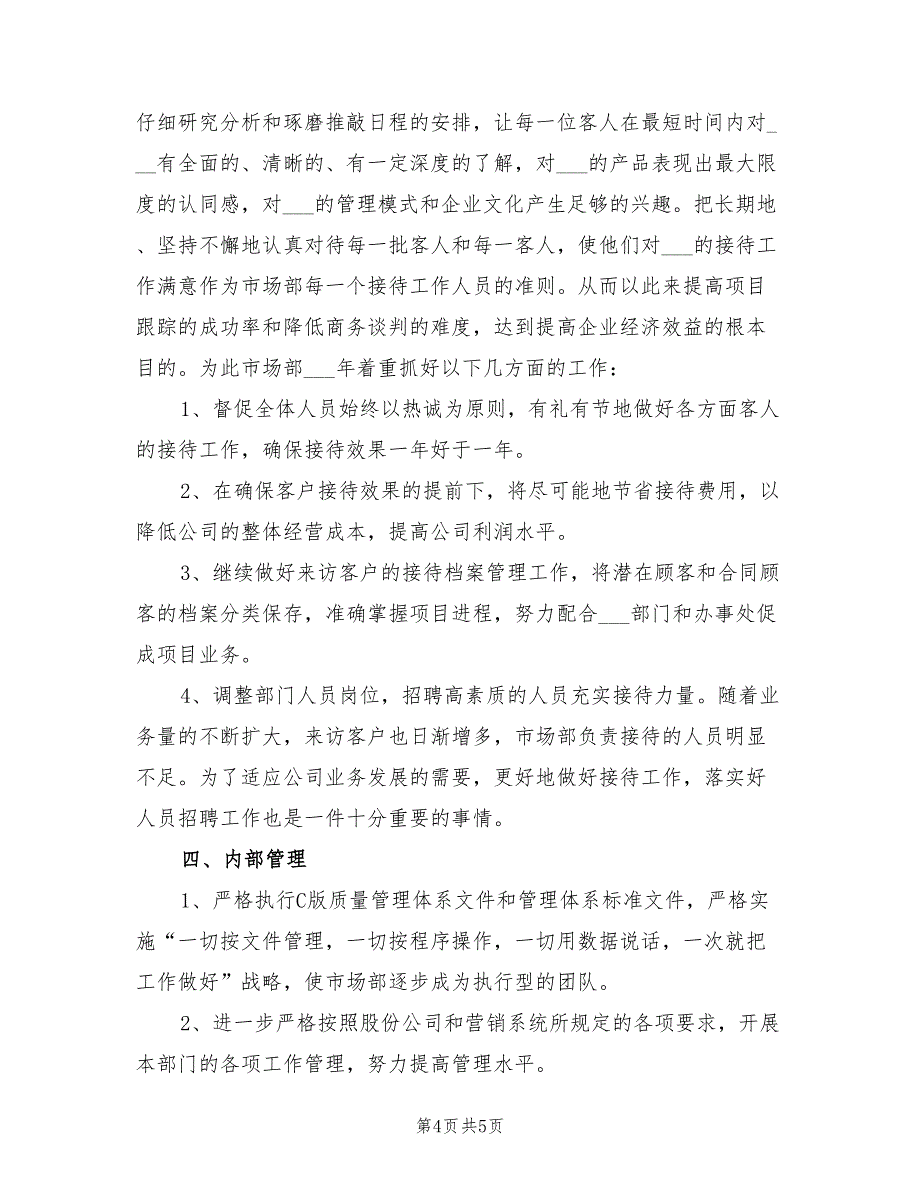 仔细研究分析和琢磨推敲日程的安排，让每一位客人在最短时间内对_
__有全面的、清晰的、有一定深度的了解，对___的产品表现出最大限
度的认同感，对___的管理模式和企业文化产生足够的兴趣。把长期地
、坚持不懈地认真对待每一批客人和每一客人，使他们对___的接待工
作满意作为市场部每一个接待工作人员的准则。从而以此来提高项目
跟踪的成功率和降低商务谈判的难度，达到提高企业经济效益的根本
目的。为此市场部___年着重抓好以下几方面的工作：
1、督促全体人员始终以热诚为原则，有礼有节地做好各方面客人
的接待工作，确保接待效果一年好于一年。
2、在确保客户接待效果的提前下，将尽可能地节省接待费用，以
降低公司的整体经营成本，提高公司利润水平。
3、继续做好来访客户的接待档案管理工作，将潜在顾客和合同顾
客的档案分类保存，准确掌握项目进程，努力配合___部门和办事处促
成项目业务。
4、调整部门人员岗位，招聘高素质的人员充实接待力量。随着业
务量的不断扩大，来访客户也日渐增多，市场部负责接待的人员明显
不足。为了适应公司业务发展的需要，更好地做好接待工作，落实好
人员招聘工作也是一件十分重要的事情。
四、内部管理
1、严格执行C版质量管理体系文件和管理体系标准文件，严格实
施“一切按文件管理，一切按程序操作，一切用数据说话，一次就把
工作做好”战略，使市场部逐步成为执行型的团队。
2、进一步严格按照股份公司和营销系统所规定的各项要求，开展
本部门的各项工作管理，努力提高管理水平。
第4页共5页